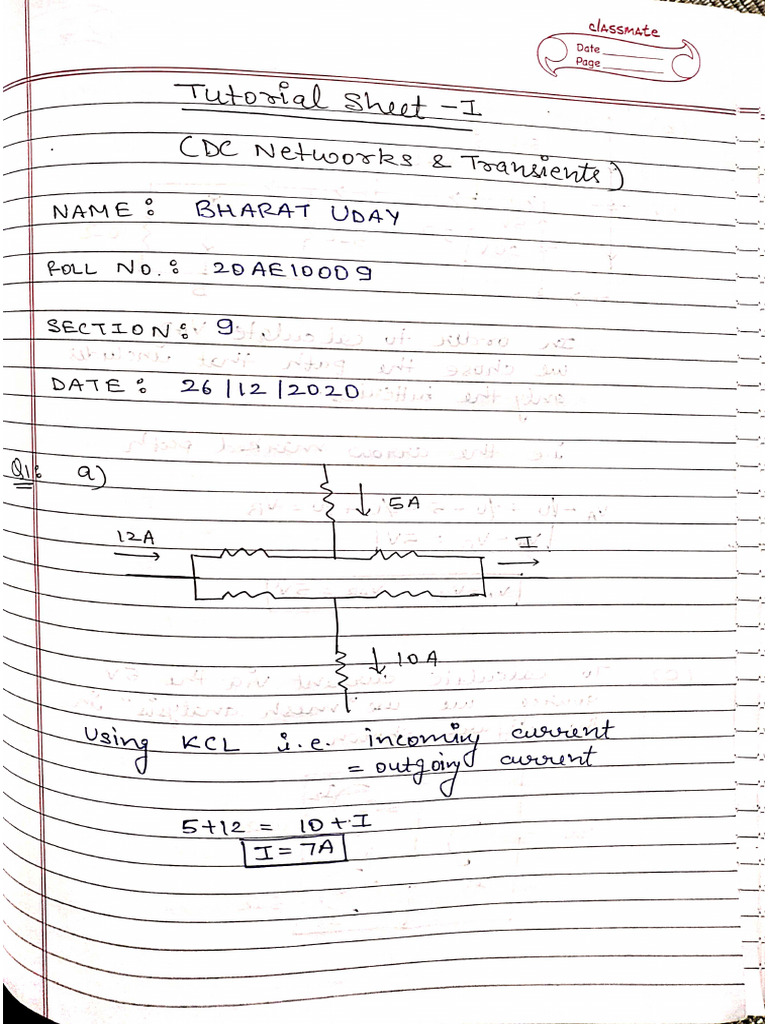 classmate
Date
Page
Tutorial Sheet - I
(DC Networks & Transients)
NAME: BHARAT UDAY
ROLL NO.: 20AE10009
SECTION: 9
DATE: 26/12/2020
Q1: a)
5A
12A
I
10A
Using KCL i.e. incoming current
= outgoing current
5+12 = 10+I
I = 7A